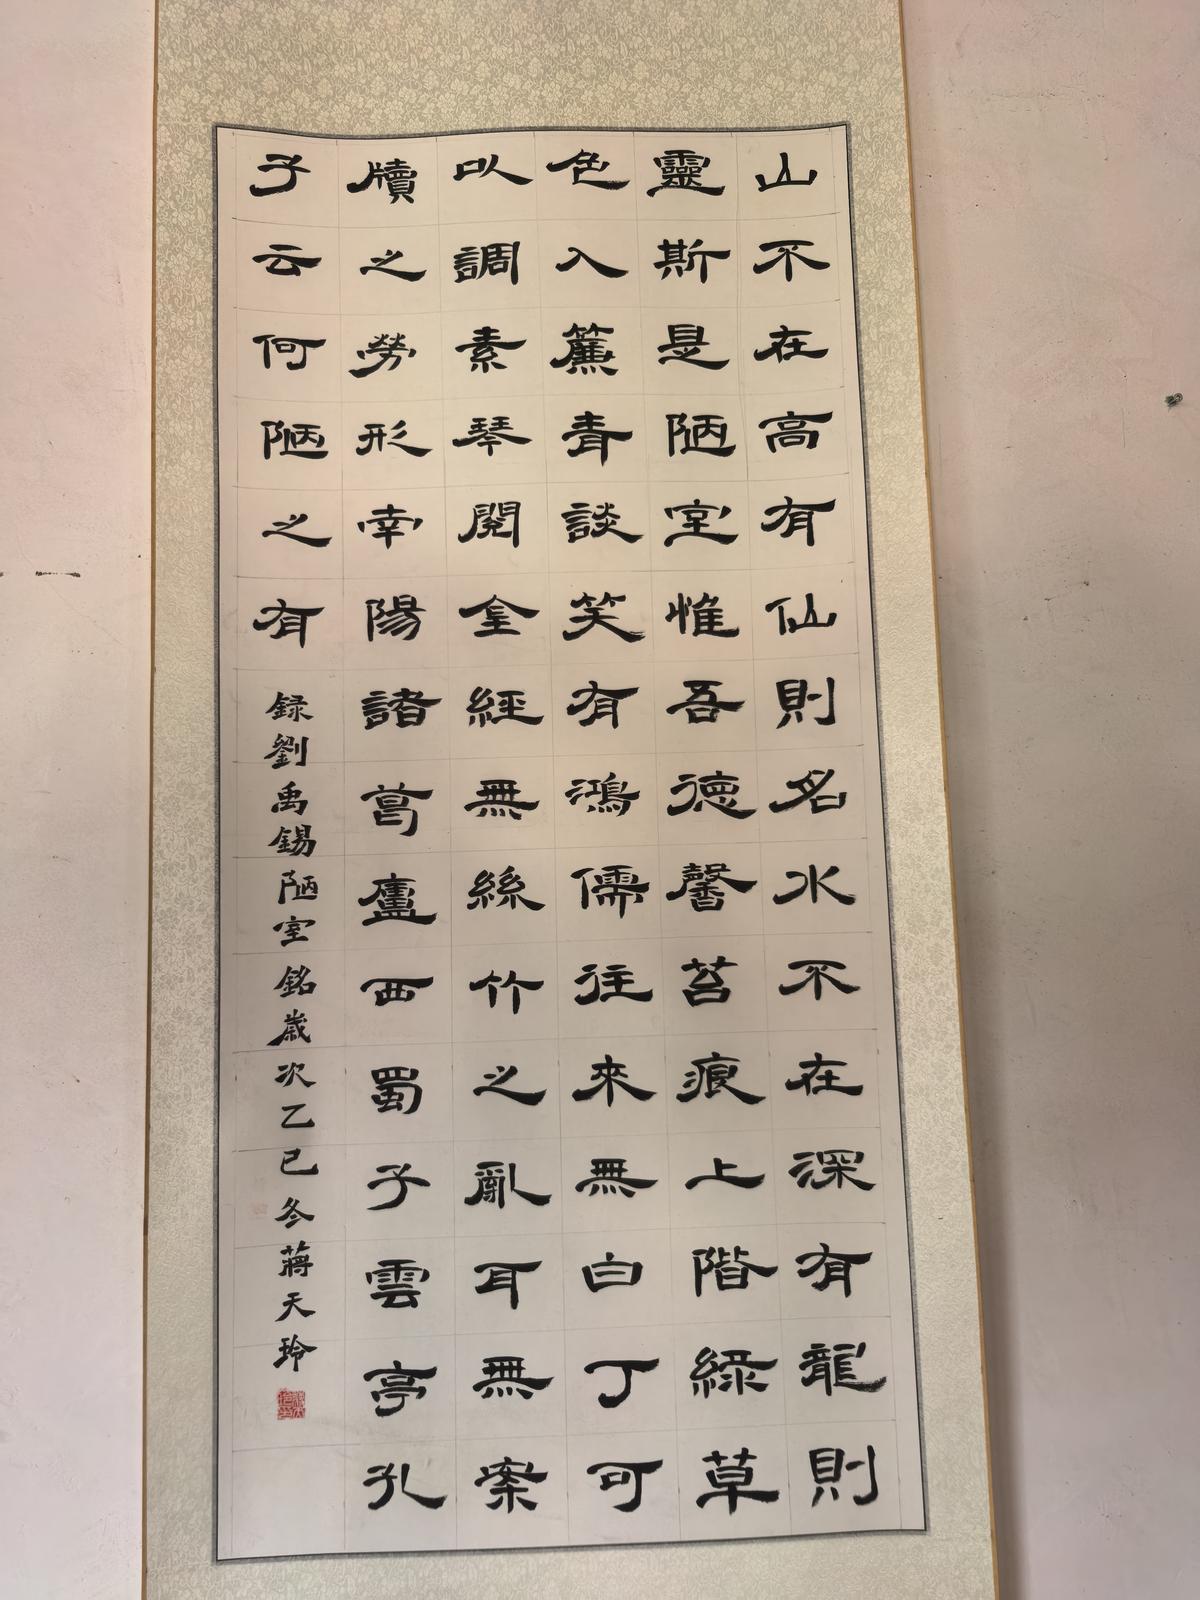 山不在高有仙則名水不在深有龍則
靈斯是陋室惟吾德馨苔痕上階綠草
色入簾青談笑有鴻儒往來無白丁可
以調素琴閱金經無絲竹之亂耳無案
牘之勞形南陽諸葛廬西蜀子雲亭孔
子云何陋之有
録劉禹錫陋室銘歲次乙巳冬蔣天玲